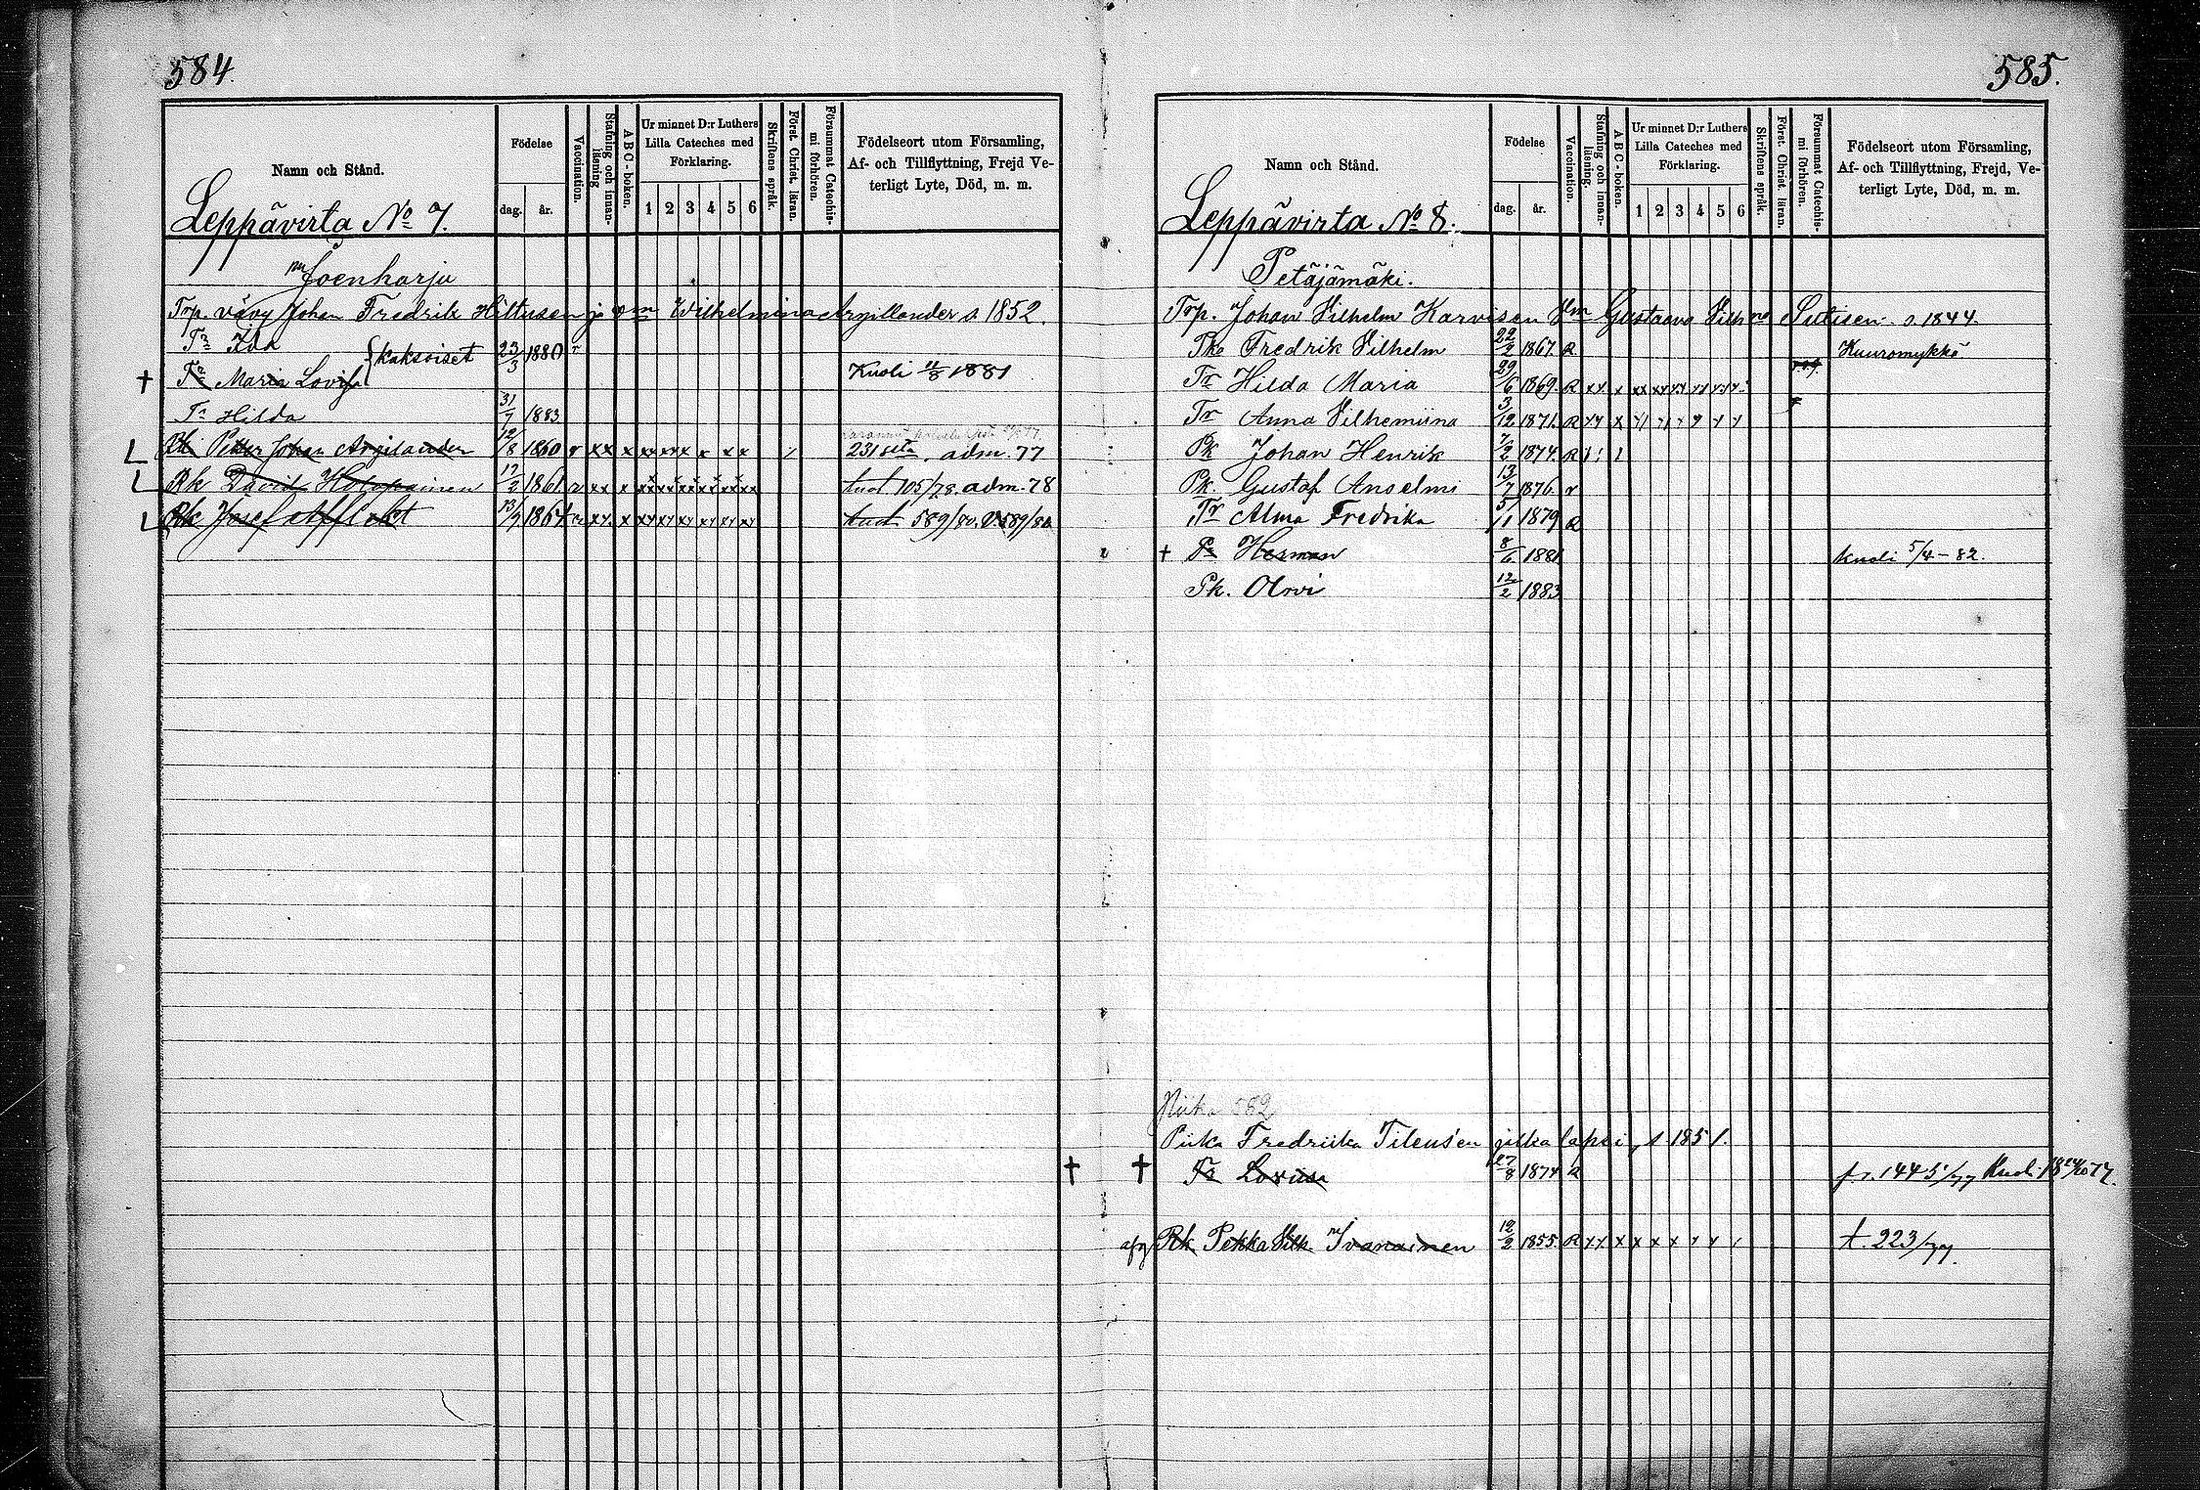 584.
Namn och Stånd.
Födelse
dag.
år.
Vaccination.
Stafning och innan-läsning
ABC-boken.
Ur minnet D:r Luthers Lilla Cateches med Förklaring.
1 2 3 4 5 6
Skriftens språk.
Först. Christ. läran.
Försummat Catechis-mi förhören.
Födelseort utom Församling,
Af- och Tillflyttning, Frejd Ve-
terligt Lyte, Död, m. m.
Leppävirta No 7.
Joenharju
Trp. vävy Johan Fredrik Hiltusen ja vm Wilhelmina Argillander s. 1852.
Tr Ida { kaksoiset 23/3 1880 r
† Tr Maria Lovisa Kuoli 11/8 1881
Tr Hilda 31/7 1883
L Petter Johan Argilander 12/8 1860 r xx x xx xx x x x 231 adm. 77
L Rk David Holopainen 17/2 1861 r xx x 105/78. adm. 78
L Rk Josef Afflekt 13/9 1864 589/80.
585.
Namn och Stånd.
Födelse
dag.
år.
Vaccination.
Stafning och innan-läsning.
ABC-boken.
Ur minnet D:r Luthers Lilla Cateches med Förklaring.
1 2 3 4 5 6
Skriftens språk.
Först. Christ. läran.
Försummat Catechis-mi förhören.
Födelseort utom Församling,
Af- och Tillflyttning, Frejd, Ve-
terligt Lyte, Död, m. m.
Leppävirta No 8.
Petäjämäki.
Trp. Johan Vilhelm Karvisen Vm Gustaava Vilhna Sutisen s. 1844.
Fredrik Vilhelm 22/2 1867. R Kuuromykkä
Tr Hilda Maria 29/6 1869. R xx x
Tr Anna Vilhemiina 3/12 1871. R
Pk Johan Henrik 7/2 1874. R
Pk. Gustaf Anselmi 13/7 1876. r
Tr Alma Fredrika 1879 R
† Herman 8/6 1881 kuoli 5/4 - 82.
Pk. Orvi 12/2 1883
582
Piika Fredriika Tileusen lapsi, s. 1851.
† † Tr Loviisa 27/8 1874 R 144 5/77 Kuoli
Rk Pekka Vilh. Ivanainen 12/2 1855. R x x x x x x x t. 223/77.